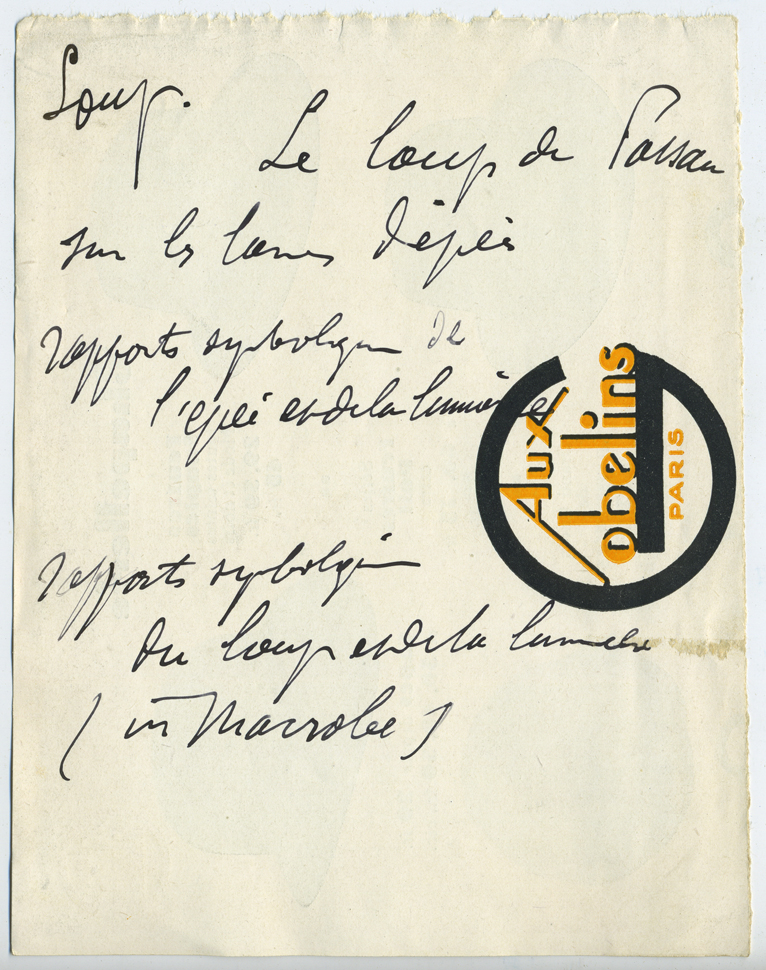 Loup.
Le loup de Passau
sur les lames d'épées
rapports symboliques de
l'épée et de la lumière
Aux
Gobelins
PARIS
rapports symboliques
du loup et de la lumière
(in Macrobe)